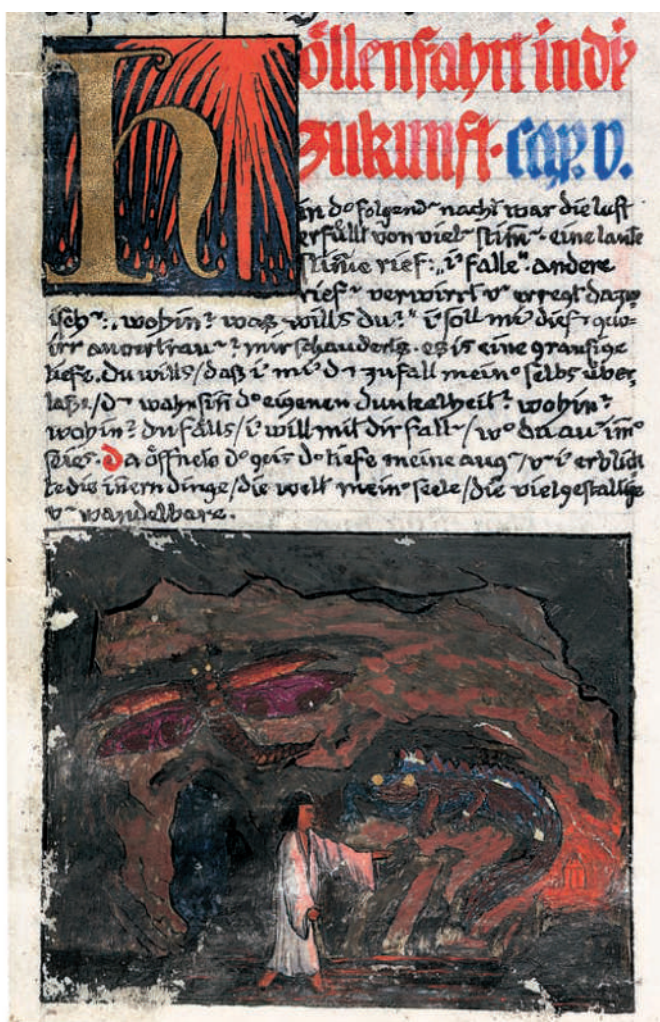 Höllenfahrt in die
Zukunft. cap. V.
in d° folgend~ nacht war die luft
erfüllt von viel~ stim̄~. eine laute
stim̄e rief: „i' falle". andere
rief~ verwirrt v~ erregt dazw
isch~: „wohin? was wills du?" i' soll mi' dies~
irr anvertrau~? mir schauderts. es is eine grausige
tiefe. du wills/daß i' mi' d~ zufall mein° selbs über,
laße/d~ wahnsin̄ d° eigenen dunkelheit? wohin?
wohin? du falls/i' will mit dir fall~/w° du au' im̄°
seies. Da öffnete d° geis d° tiefe meine aug~/v~ i' erblick
te die in̄ern dinge/die welt mein° seele/die vielgestaltige
v~ wandelbare.